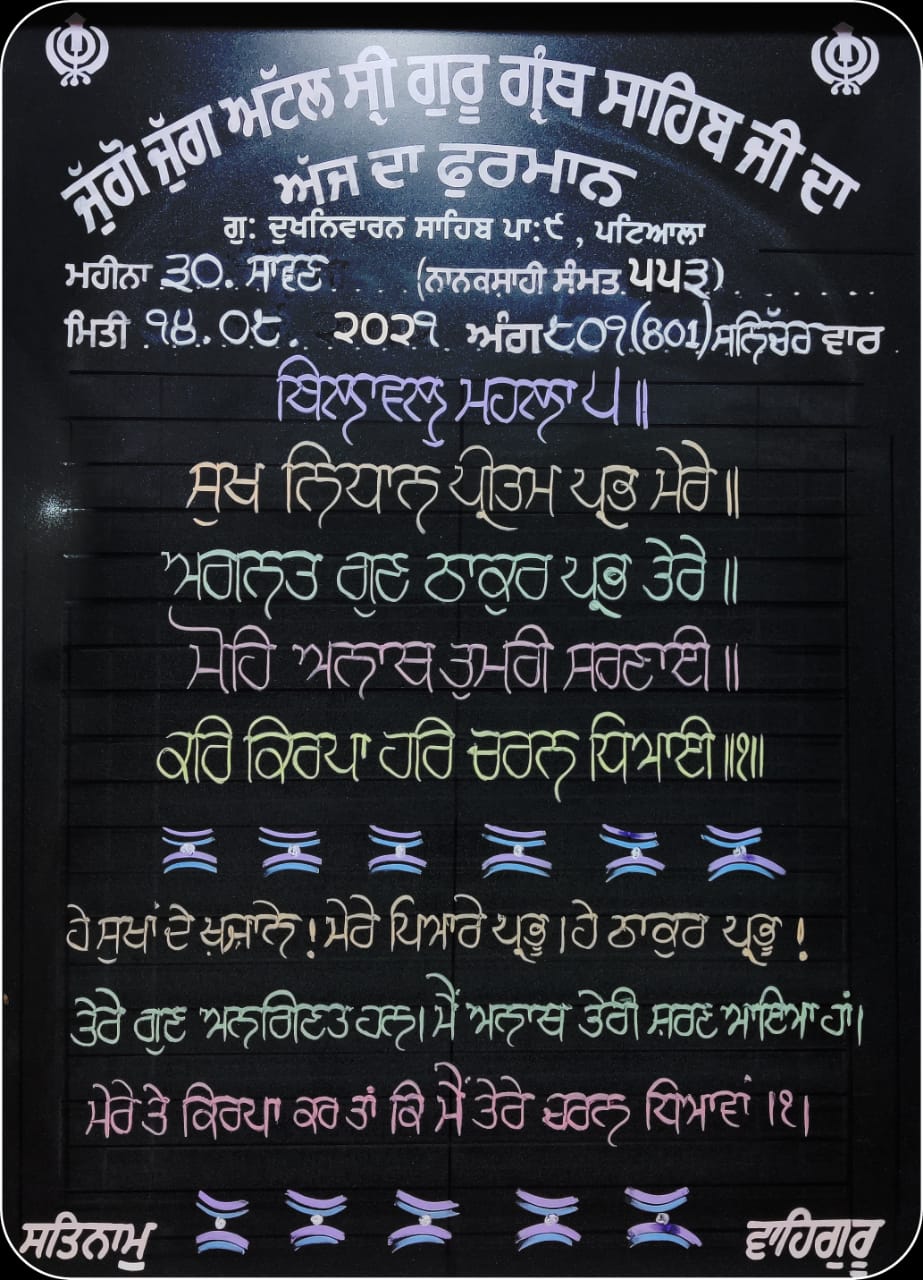 ਜੁੱਗੋ ਜੁੱਗ ਅਟੱਲ ਸ੍ਰੀ ਗੁਰੂ ਗ੍ਰੰਥ ਸਾਹਿਬ ਜੀ ਦਾ
ਅੱਜ ਦਾ ਫੁਰਮਾਨ
ਗੁ: ਦੁਖਨਿਵਾਰਨ ਸਾਹਿਬ ਪਾ:੯ , ਪਟਿਆਲਾ
ਮਹੀਨਾ ੩੦. ਸਾਵਣ (ਨਾਨਕਸ਼ਾਹੀ ਸੰਮਤ ੫੫੩)
ਮਿਤੀ ੧੪.੦੮. ੨੦੨੧ ਅੰਗ ੮੦੧(801) ਸਨਿੱਚਰ ਵਾਰ
ਬਿਲਾਵਲੁ ਮਹਲਾ ੫ ॥
ਸੁਖ ਨਿਧਾਨ ਪ੍ਰੀਤਮ ਪ੍ਰਭ ਮੇਰੇ ॥
ਅਗਨਤ ਗੁਣ ਠਾਕੁਰ ਪ੍ਰਭ ਤੇਰੇ ॥
ਮੋਹਿ ਅਨਾਥ ਤੁਮਰੀ ਸਰਣਾਈ ॥
ਕਰਿ ਕਿਰਪਾ ਹਰਿ ਚਰਨ ਧਿਆਈ ॥੧॥
ਹੇ ਸੁਖਾਂ ਦੇ ਖ਼ਜ਼ਾਨੇ ! ਮੇਰੇ ਪਿਆਰੇ ਪ੍ਰਭੂ । ਹੇ ਠਾਕੁਰ ਪ੍ਰਭੂ !
ਤੇਰੇ ਗੁਣ ਅਨਗਿਣਤ ਹਨ। ਮੈਂ ਅਨਾਥ ਤੇਰੀ ਸ਼ਰਣ ਆਇਆ ਹਾਂ।
ਮੇਰੇ ਤੇ ਕਿਰਪਾ ਕਰ ਤਾਂ ਕਿ ਮੈਂ ਤੇਰੇ ਚਰਨ ਧਿਆਵਾਂ ।੧।
ਸਤਿਨਾਮੁ ਵਾਹਿਗੁਰੂ